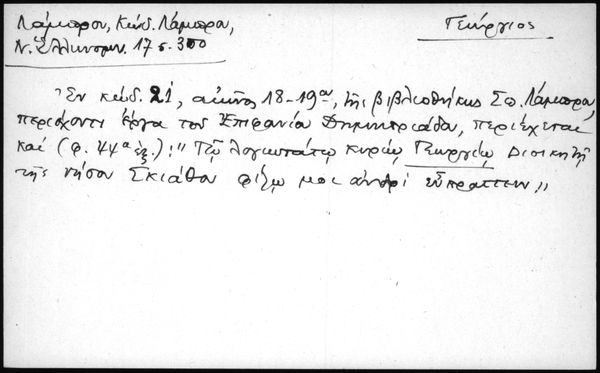 Λάμπρου, Κώδ. Λάμπρου,
Γεώργιος
Ν. Ἑλληνομν. 17 σ. 300
Ἐν κώδ. 21, αἰῶνος 18-19ου, τῆς βιβλιοθήκης Σπ. Λάμπρου,
περιέχοντι ἔργα τοῦ Ἐπιφανίου Δημητριάδου, περιέχεται
καί (φ. 44α ἑξ.): "Τῷ λογιωτάτῳ κυρίῳ Γεωργίῳ Διοικητῇ
τῆς νήσου Σκιάθου φίλῳ μοι εὖ πράττειν"